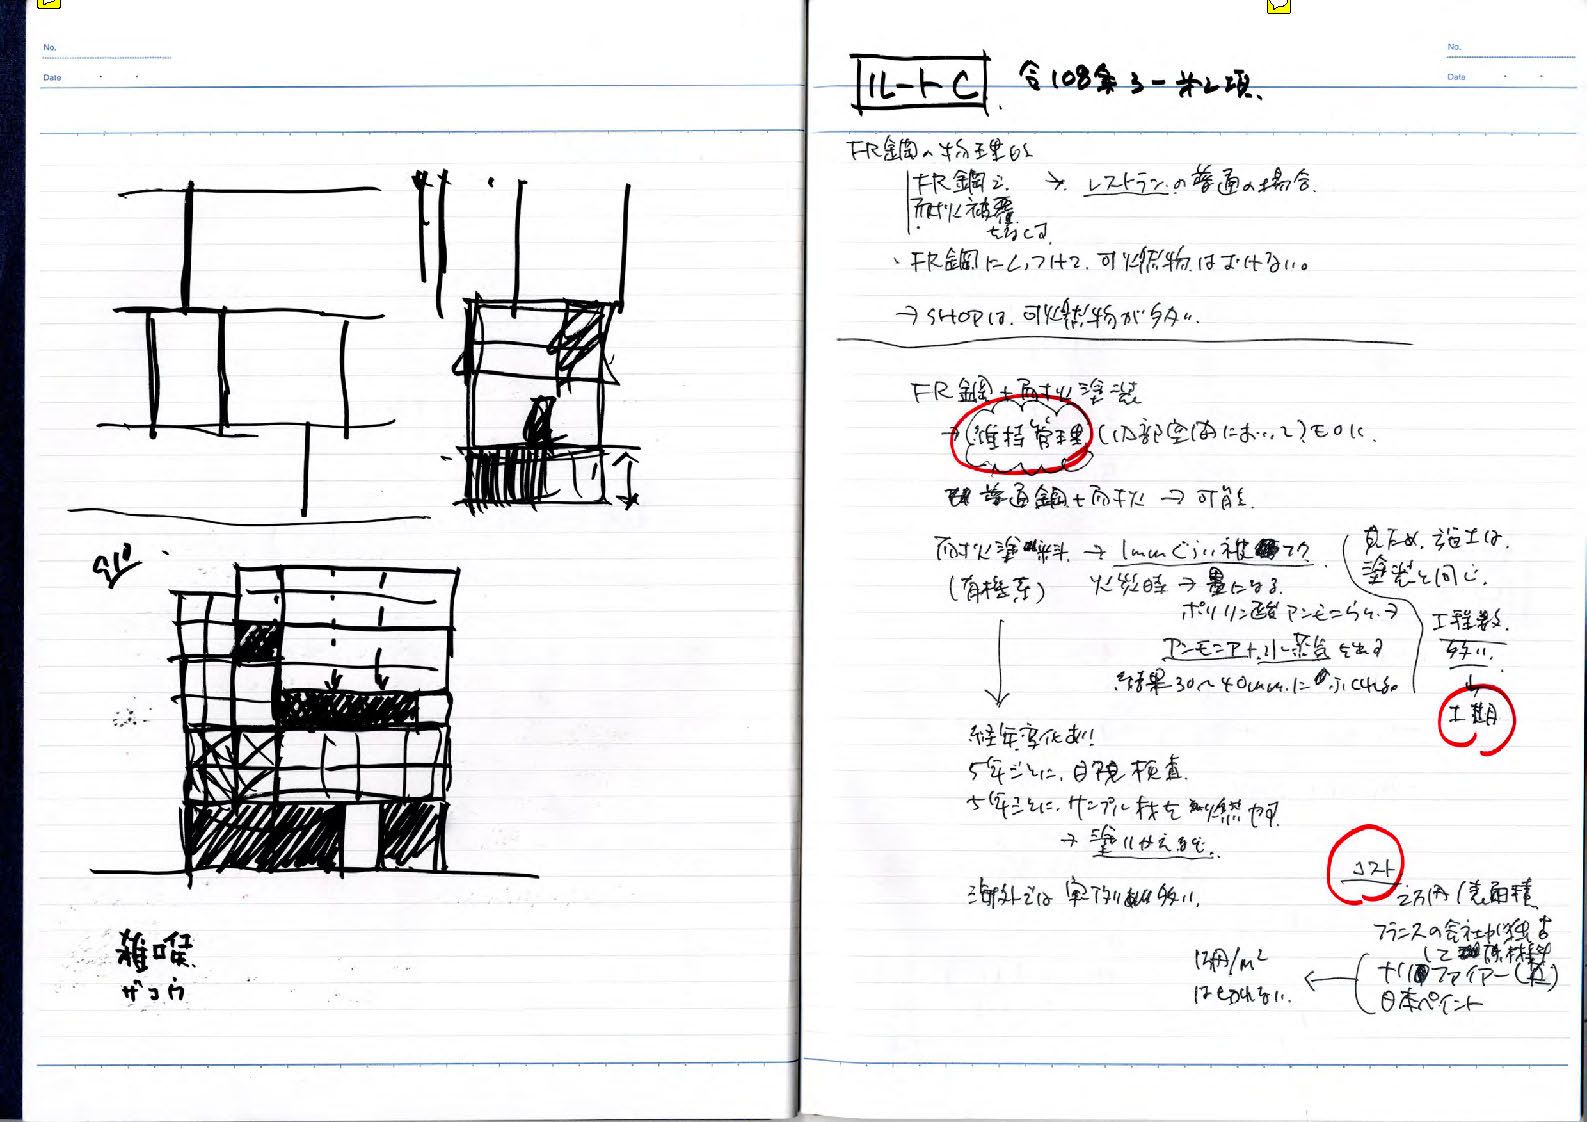 No.
Date
雑喉
ザコウ
No.
Date
ルートC 令108条3-第2項.
FR鋼の物理的
FR鋼で → レストランの普通の場合.
耐火被覆
をなくす.
・FR鋼にくっつけて、可燃物はおけない。
→ SHOPは、可燃物が多い.
FR鋼+耐火塗装
→ 維持管理 (内部空間において)
普通鋼+耐火 → 可能.
耐火塗料 → 1mmぐらい被マク
(有機系) 火災時 → になる.
ポリリン酸アンモニウム→
アンモニア+水蒸気を出す
結果30~40mmにふくれる。
見ため、施工は、
塗装と同じ.
工程数.
多い.
↓
工期
経年変化あり!
5年ごとに、目視検査.
5年ごとに、サンプル材を燃やす.
→ 塗りかえるぞ.
海外では実例が多い.
コスト
2万円/見面積
フランスの会社が
して原材料
ファイアー( )
日本ペイント
1万円/m2
はきれない.